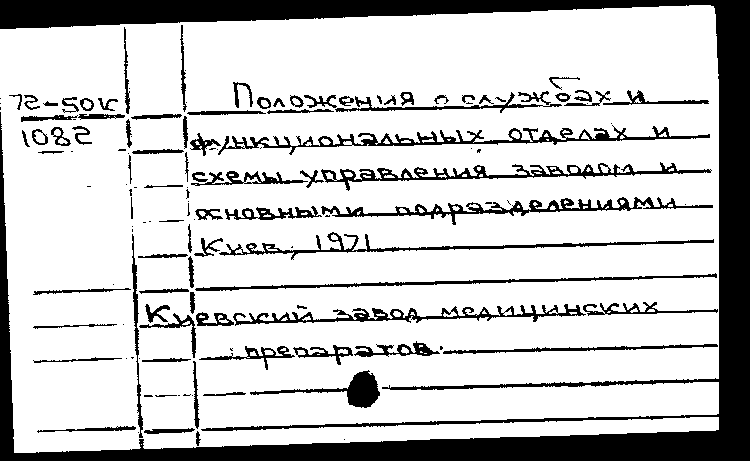 72-50к Положения о службах и
1082 функциональных отделах и
схемы управления заводом и
основными подразделениями
Киев, 1971
Киевский завод медицинских
препаратов.